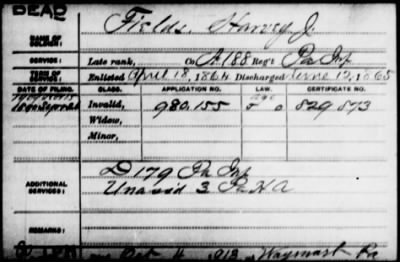 DEAD
Fields, Harvey J.
NAME OF SOLDIER:
SERVICE: Late rank, Co. A 188 Reg't Pa Inf
TERM OF SERVICE: Enlisted April 18, 1864 Discharged June 12, 1865
DATE OF FILING. CLASS. APPLICATION NO. LAW. CERTIFICATE NO.
1890 Sept 26 Invalid, 980.155 829.873
Widow,
Minor,
ADDITIONAL SERVICES: D 179 Pa Inf
Unassd 3 Pa H A
REMARKS:
Oct 11 1913 Waymart Pa